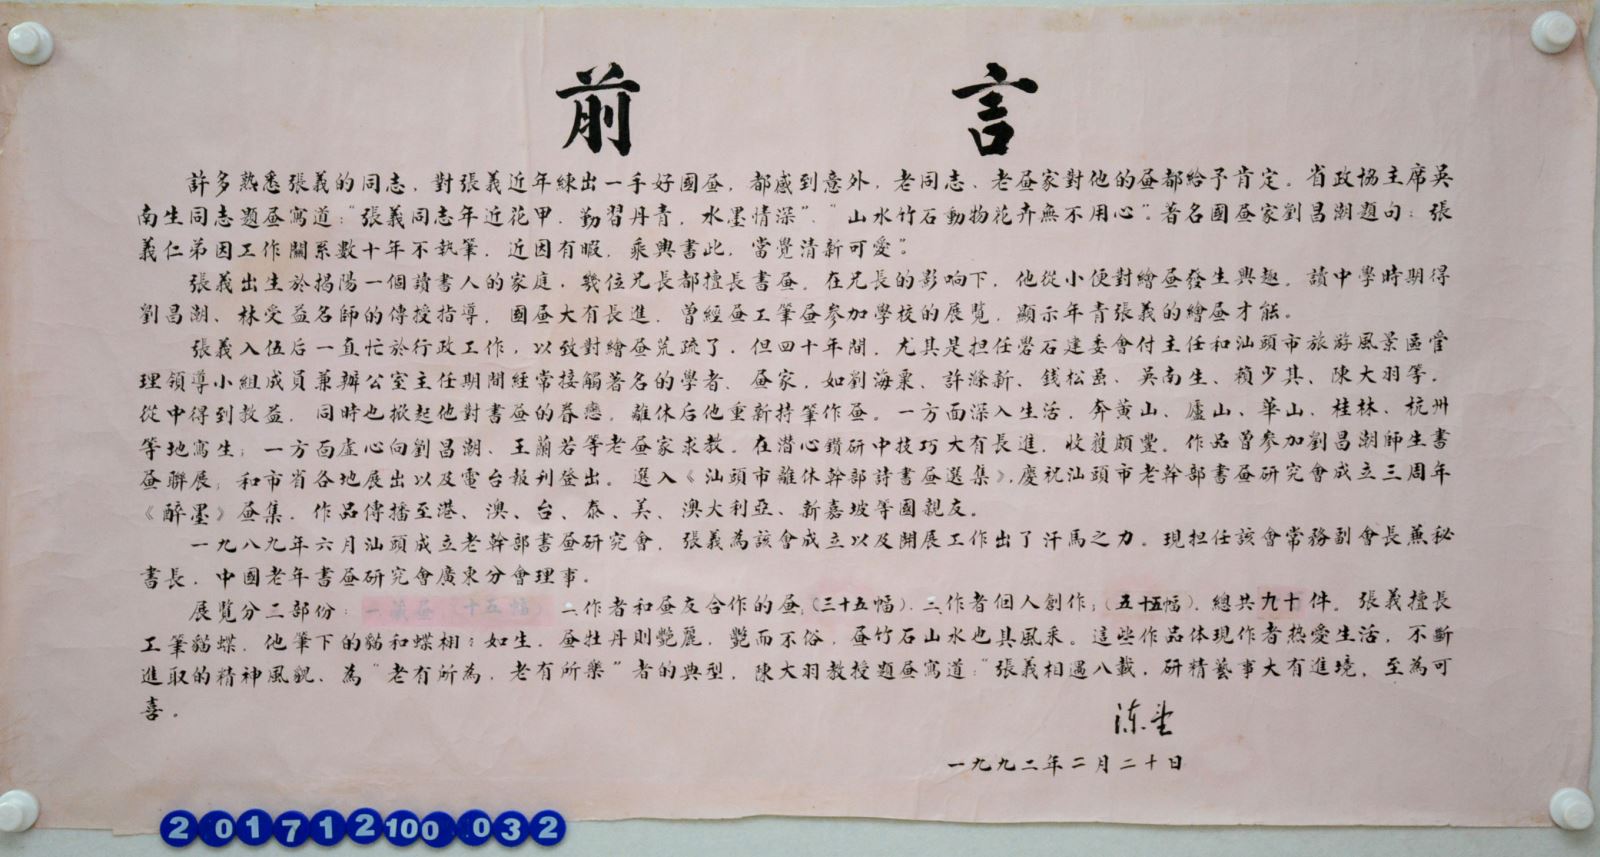 前言
許多熟悉張義的同志，對張義近年練出一手好國畫，都感到意外，老同志、老畫家對他的畫都給予肯定。省政協主席吴
南生同志題畫寫道："張義同志年近花甲，勤習丹青，水墨情深"、"山水竹石動物花卉無不用心"。著名國畫家劉昌潮題句：張
義仁弟因工作關系數十年不執筆，近因有暇，乘興書此，當覺清新可愛"。
張義出生於揭陽一個讀書人的家庭，幾位兄長都擅長書畫。在兄長的影响下，他從小便對繪畫發生興趣。讀中學時期得
劉昌潮、林受益名師的傳授指導，國畫大有長進，曾經畫工筆畫參加學校的展覽，顯示年青張義的繪畫才能。
張義入伍后一直忙於行政工作，以致對繪畫荒疏了，但四十年間，尤其是担任礐石建委會付主任和汕頭市旅游風景區管
理領導小組成員兼辦公室主任期間經常接觸著名的學者、畫家，如劉海粟、許滌新、錢松喦、吳南生、賴少其、陳大羽等，
從中得到教益，同時也掀起他對書畫的眷戀。離休后他重新持筆作畫。一方面深入生活，奔黄山、廬山、華山、桂林、杭州
等地寫生；一方面虚心向劉昌潮、王蘭若等老畫家求教。在潜心鑽研中技巧大有長進，收穫頗豐。作品曾參加劉昌潮師生書
畫聯展；和市省各地展出以及電台報刋登出。選入《汕頭市離休幹部詩書畫選集》，慶祝汕頭市老幹部書畫研究會成立三周年
《醉墨》畫集，作品傳播至港、澳、台、泰、美、澳大利亞、新嘉坡等國親友。
一九八九年六月汕頭成立老幹部書畫研究會，張義為該會成立以及開展工作出了汗馬之力。現担任該會常務副會長兼秘
書長，中國老年書畫研究會廣東分會理事。
展覧分三部份：一藏畫（十五幅）二作者和畫友合作的畫；（三十五幅），三作者個人創作；（五十五幅），總共九十件。張義擅長
工筆貓蝶，他筆下的貓和蝶栩：如生，畫牡丹則艷麗，艷而不俗，畫竹石山水也具風采。這些作品体現作者热愛生活，不斷
進取的精神風貌、為"老有所為，老有所樂"者的典型，陳大羽教授題畫寫道："張義相遇八載，研精藝事大有進境，至為可
喜。
一九九二年二月二十日
201712100 032